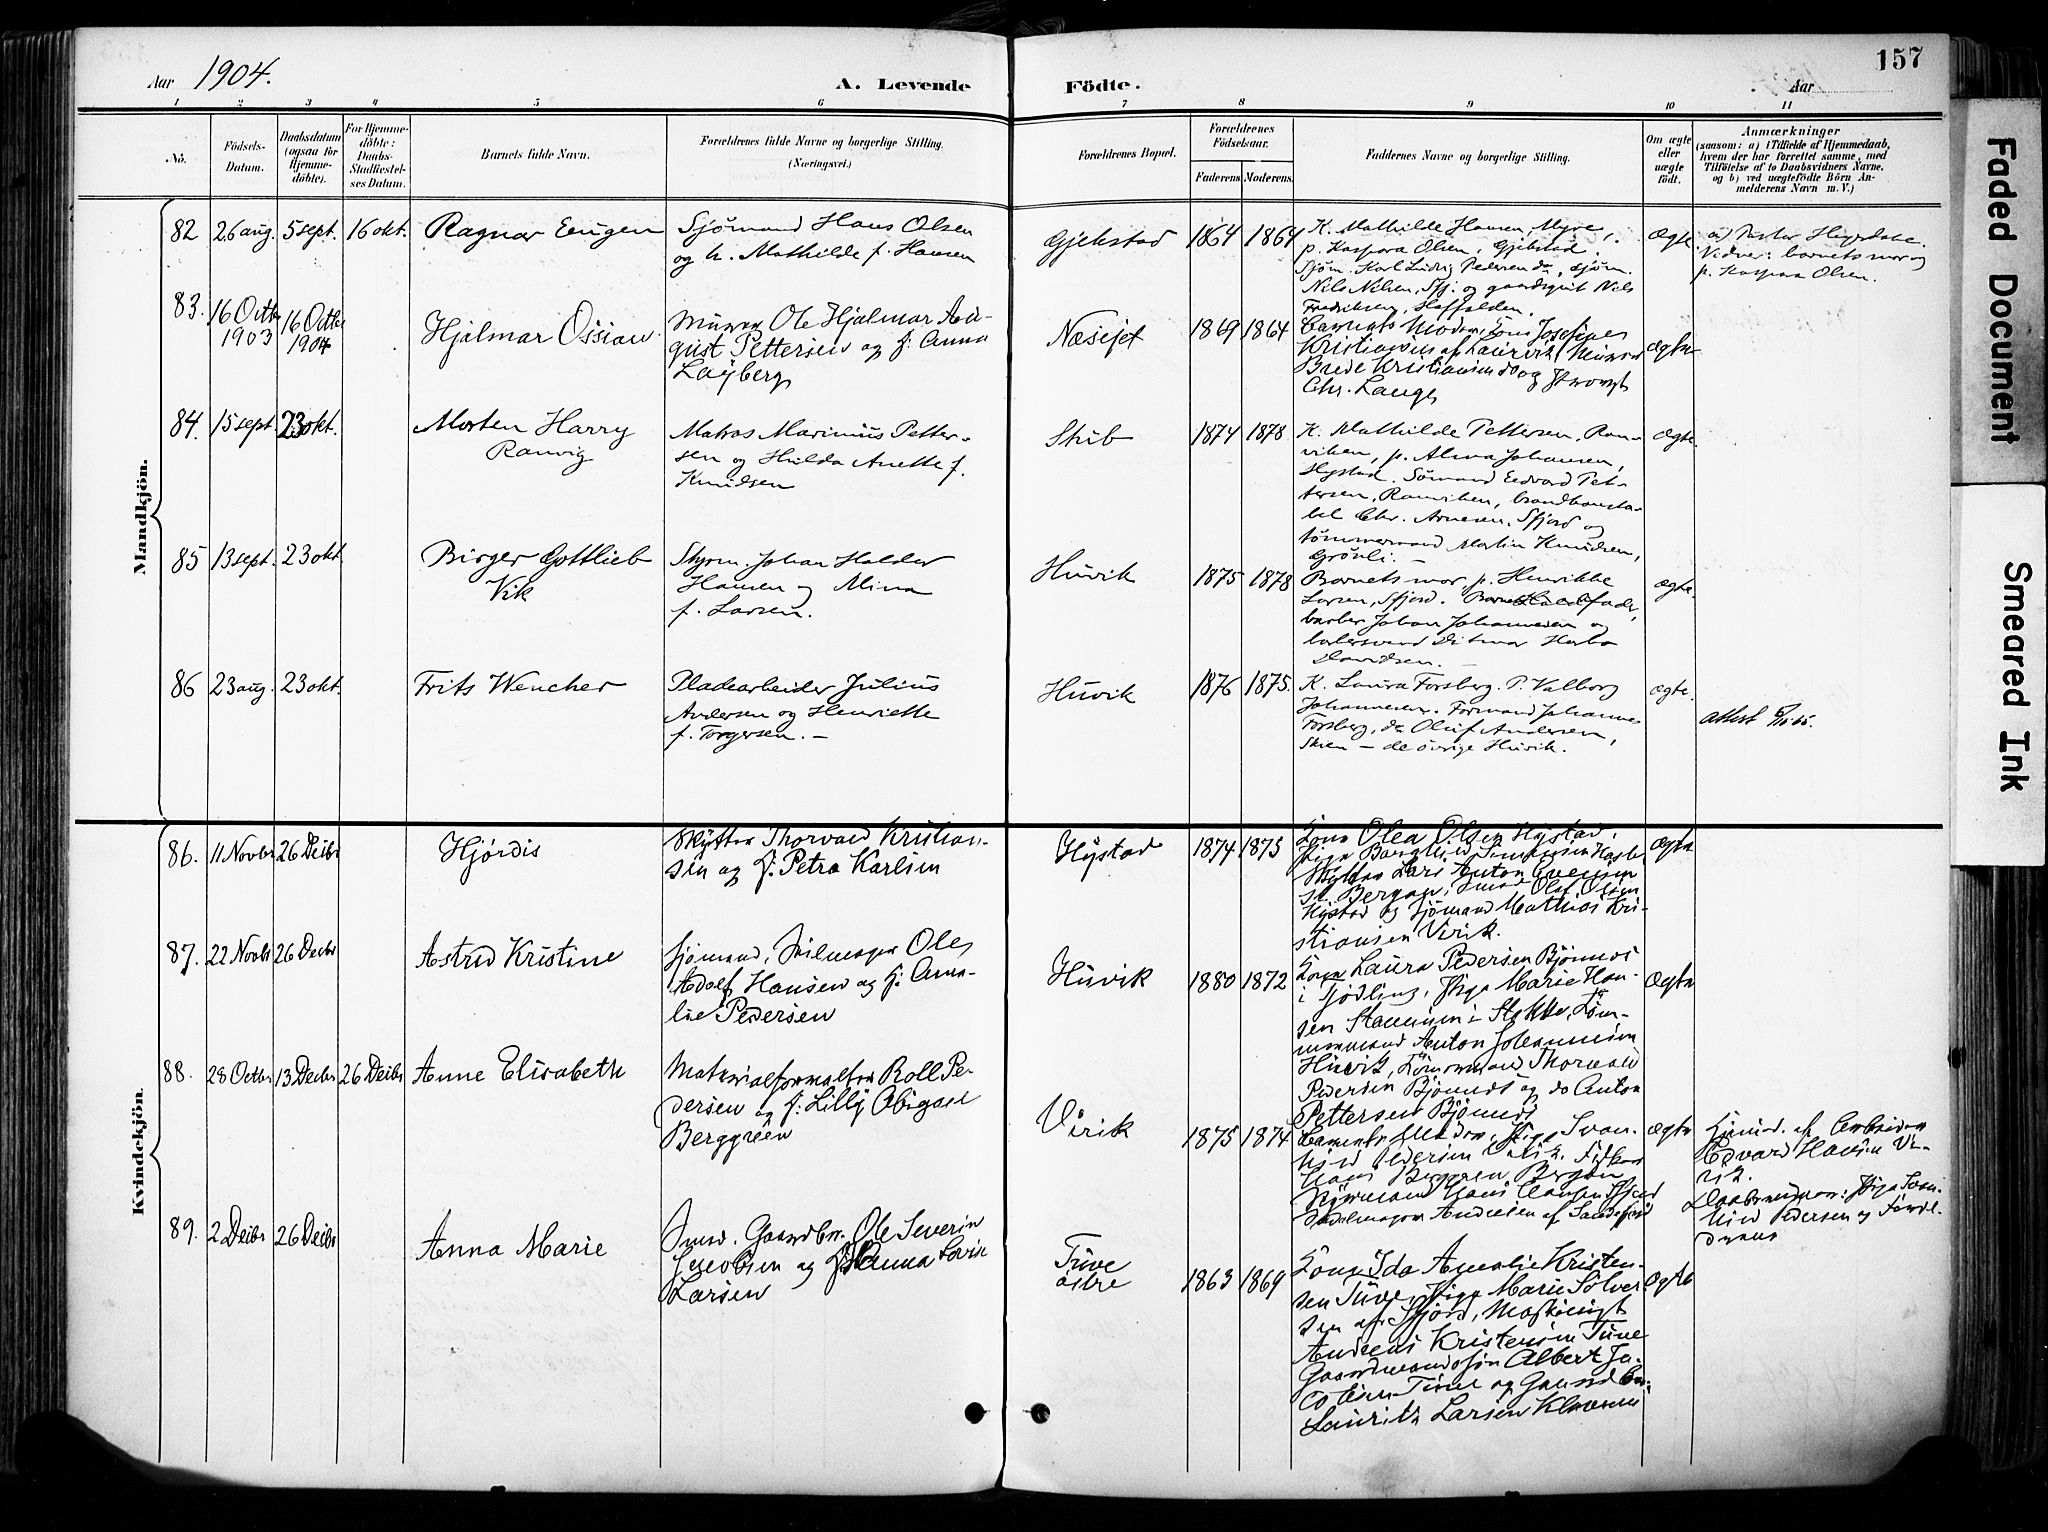 157
Aar 1904.
A. Levende Födte.
Aar
1 2 3 4 5 6 7 8 9 10 11
No.
Födsels-
Datum.
Daabsdatum
(ogsaa for
Hjemme-
döbte).
For Hjemme-
döbte:
Daabs-
Stadfæstel-
ses Datum.
Barnets fulde Navn.
Forældrenes fulde Navne og borgerlige Stilling.
(Næringsvei.)
Forældrenes Bopæl.
Forældrenes
Födselsaar.
Faderens. Moderens.
Faddernes Navne og borgerlig Stilling.
Om ægte
eller
uægte
födt.
Anmærkninger
(saasom: a) i Tilfælde af Hjemmedaab,
hvem der har forrettet samme, med
Tilföielse af to Daabsvidners Navne,
og b) ved uægtefödte Börn An-
melderens Navn m. V.)
Mandkjön.
82 26 aug. 5 sept. 16 okt. Ragnar Eugen
Sjømand Hans Olsen
og h. Mathilde f. Hansen
Gjekstad 1864 1864
K. Mathilde Hansen, Myre,
p. Kaspara Olsen, Gjekstad,
Sjøm. Karl Ludvig Pedersen do, sjøm.
Nils Nilsen, Sfj. og gaardsgut Nils
Fredriksen, Haffalden.
Ægte
a) Pastor
Vidner: barnets mor og
p. Kaspara Olsen.
83. 16 Octbr 1903 16 Octbr 1904 Hjalmar Ossian
Murer Ole Hjalmar Au-
gust Pettersen og f. Anna
Løyberg
Nesejet 1869 1864
Barnets Moder, Kone Josefine
Kristiansen af Laurvik, Murer
Brede Kristiansen do og
Chr. Lange
Ægte
84. 15 sept. 23 okt. Morten Harry
Ranvig
Matros Marinius Petter-
sen og Hulda Anette f.
Knudsen
Stub 1874 1878
K. Mathilde Pettersen, Ran-
viken, p. Alma Johansen,
Hystad. Sømand Edvard Pet-
tersen, Ranviken, brandkonsta-
bel Chr. Arnesen, Sfjord og
tømmermand Martin Knudsen,
Grønli. –
ægte.
85 13 sept. 23 okt. Birger Gottlieb
Vik
Styrm. Johan Haldor
Hansen og Mina
f. Larsen.
Huvik 1875 1878
Barnets mor, p. Henrikke
Larsen, Sfjord. Barnets fader,
barber Johan Johannesen og
barbersvend Ditmar
Davidsen. –
ægte.
86 23 aug. 23 okt. Frits Wencher
Pladearbeider Julius
Andersen og Henriette
f. Torgersen. –
Huvik 1876 1875.
K. Laura Forsberg. P. Valborg
Johannesen. Formand Johannes
Forsberg, do Oluf Andersen,
Skien – de øvrige Huvik.
ægte.
attest
Kvindekjön.
86. 11 Novbr 26 Decbr Hjördis
Skytter Thorvald Kristian-
sen og f. Petra Karlsen
Hystad 1874 1875
Kone Olea Olsen Hystad,
Pige Borghild
Skytter Lars Anton Evensen
Bergan, Olaf Olsen
Hystad og Sjömand Mathias Kri-
stiansen Virik.
Ægte
87. 22 Novbr 26 Decbr Astrid Kristine
Sjömand, Seilmager Ole
Adolf Hansen og f. Ama-
lie Pedersen
Huvik 1880 1872
Kone Laura Pedersen Bjönnes
i Tjödling, Pige Marie Han-
sen i Stokke, Töm-
mermand Anton Johannesen
Huvik, Tömmermand Thorvald
Pedersen Bjönnes og do Anton
Pettersen Bjönnes
Ægte
88. 28 Octbr 13 Decbr 26 Decbr Anne Elisabeth
Materialforvalter Rolf Pe-
dersen og f. Lilly Abigael
Berggreen
Virik 1875 1874
Barnets Moder, Pige Svan-
hild Pedersen Virik.
Hans Berggreen Bergan
Styrmand Hans Clausen Sfjord
Sadelmager Andresen af Sandefjord
Ægte
Hjemmed. af Arbeider
Edvard Hansen Vi-
rik.
Daabsvidner: Pige Svan-
hild Pedersen og
89. 2 Decbr 26 Decbr Anna Marie
Smed. Gaardbr. Ole Severin
Jacobsen og f. Hanna Lovise
Larsen
Tuve
østre 1863 1869
Kone Ida Amalie Kristen-
sen Tuve, Pige Marie Sölver-
sen af Sfjord, Maskinist
Andreas Kristensen Tuve
Gaardmandssön Albert Ja-
cobsen Tuve og Gaardbr.
Lauritz Larsen Klaveness
Ægte
Faded Document
Smeared Ink